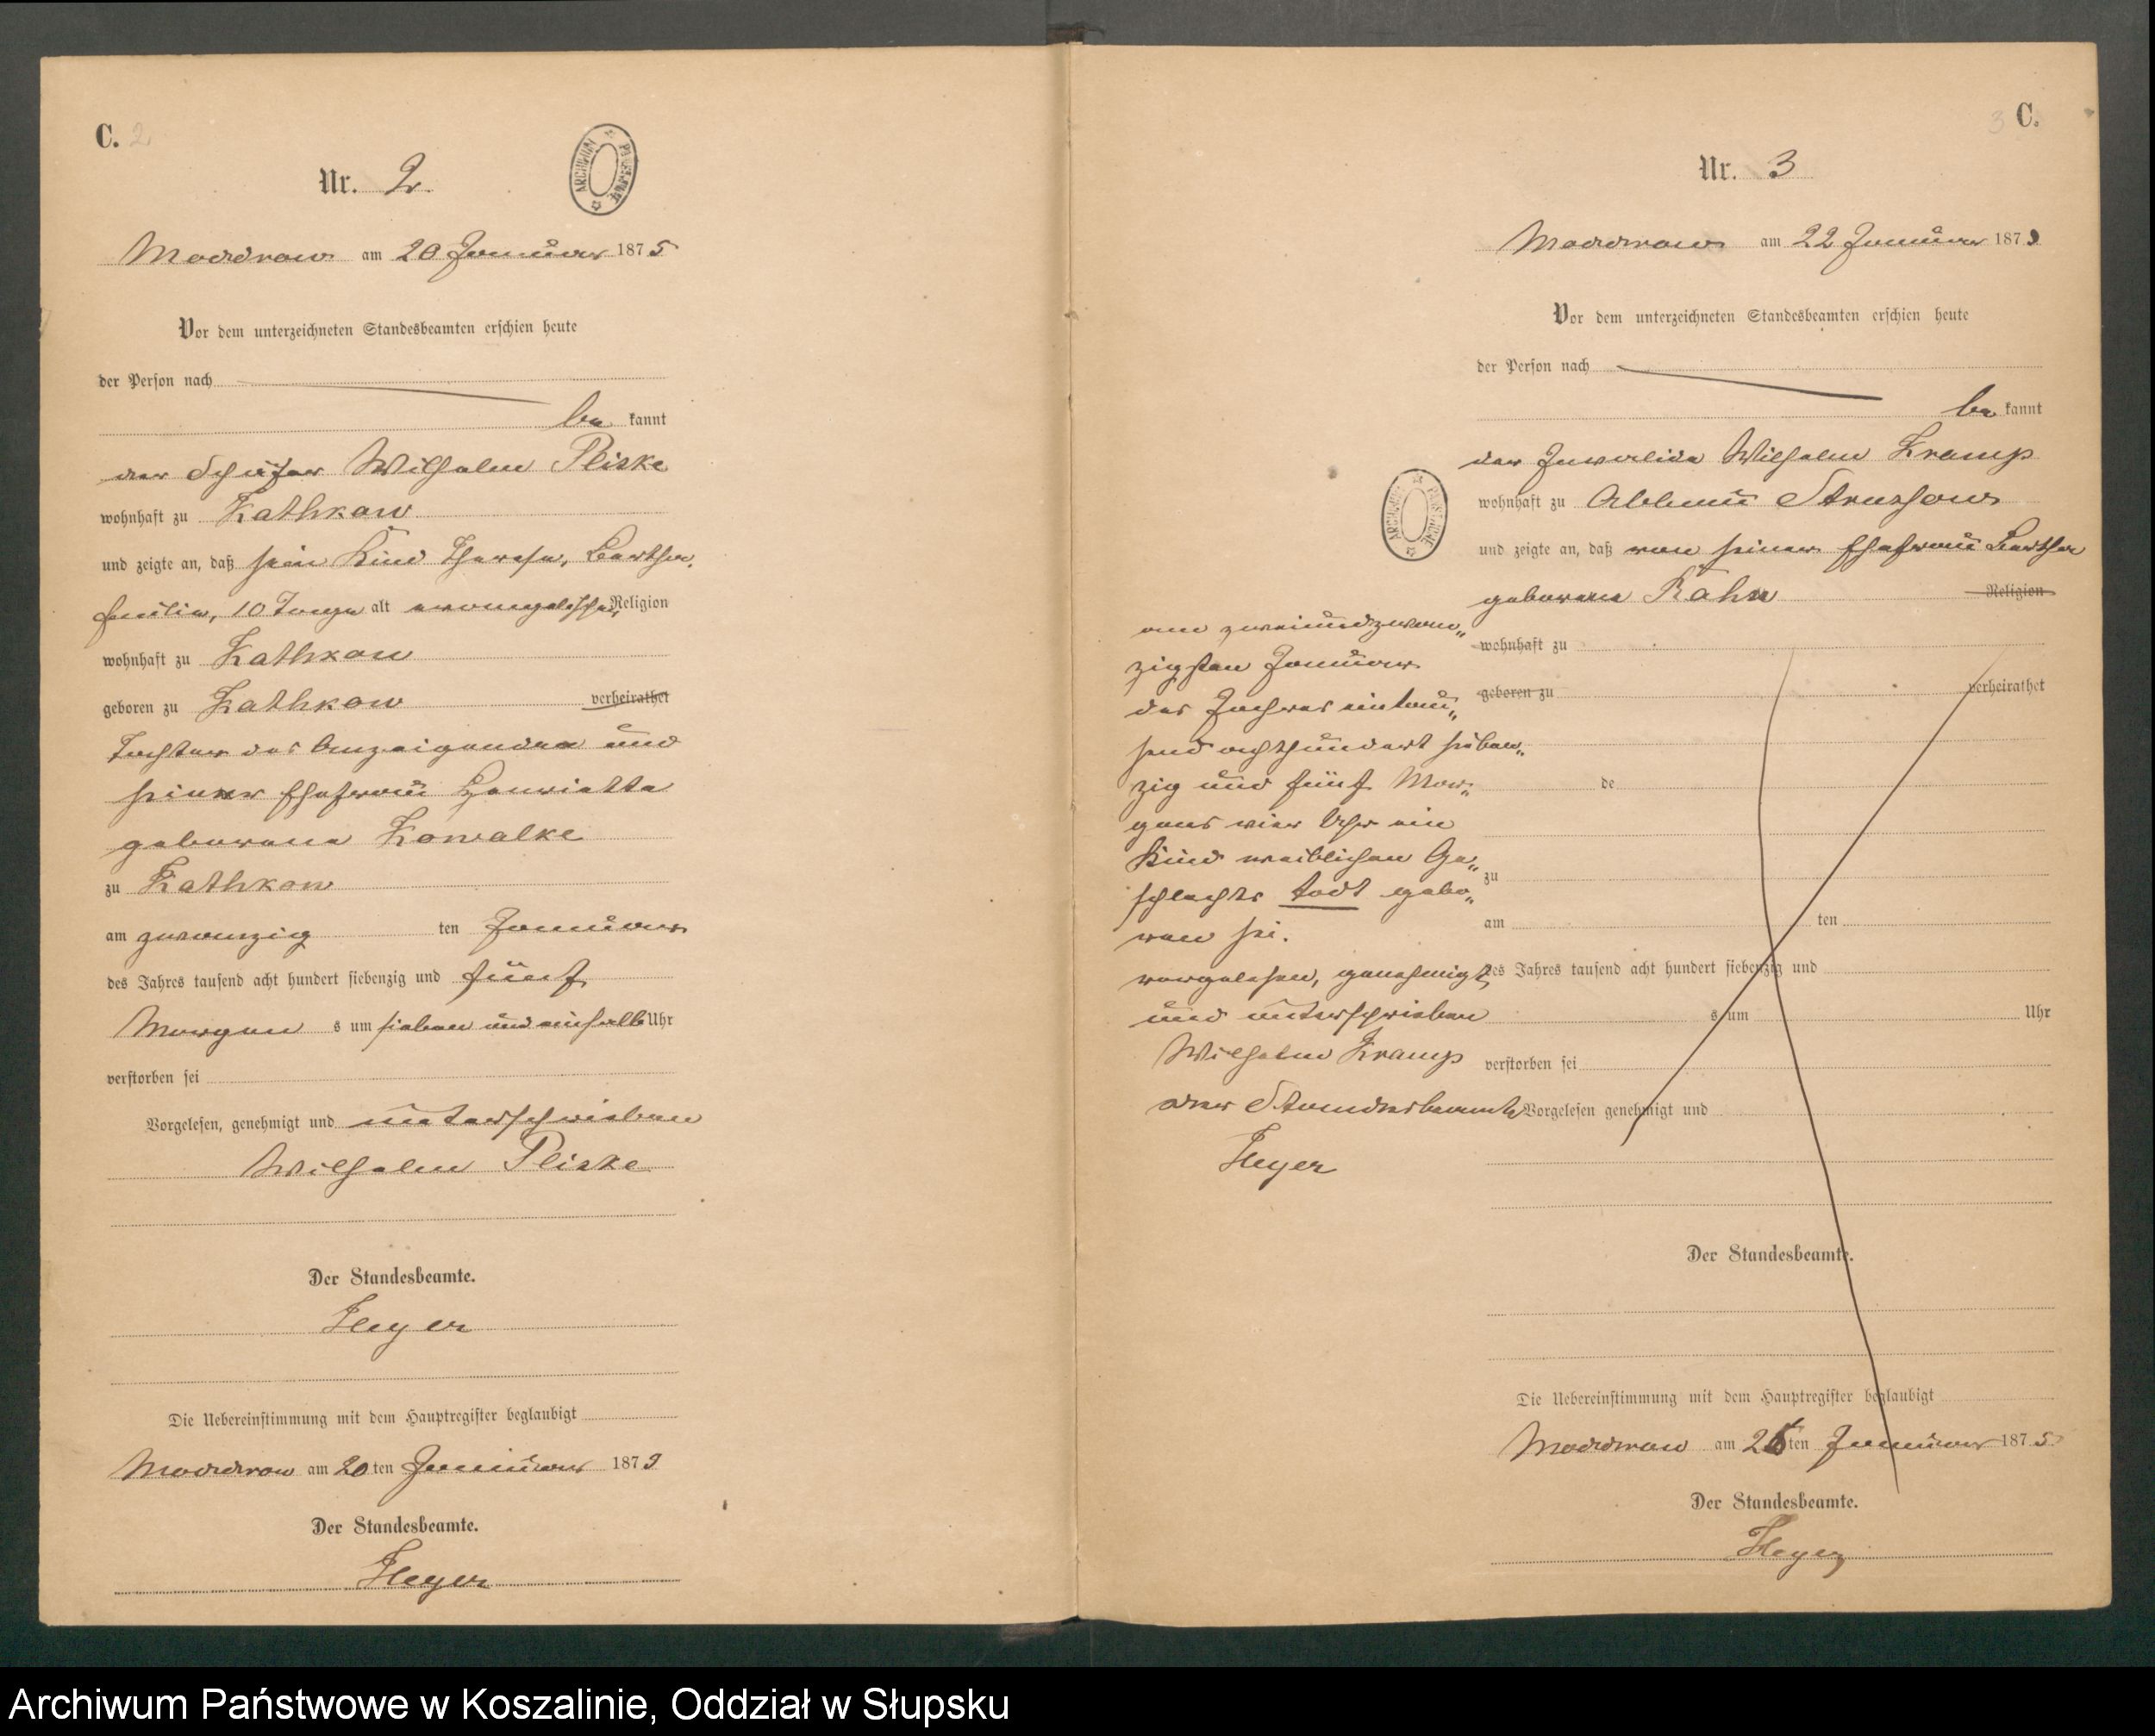 C. 2
Nr. 2.
ARCHIWUM PAŃSTWOWE
Moddrow am 20 Januar 1875
Vor dem unterzeichneten Standesbeamten erschien heute
der Person nach
be kannt
der Schäfer Wilhelm Pliske
wohnhaft zu Kathkow
und zeigte an, daß sein Kind Therese, Berthe,
Emilie, 10 Tage alt evangelischer Religion
wohnhaft zu Kathkow
geboren zu Kathkow verheirathet
Tochter des Anzeigenden und
seiner Ehefrau Henriette
geborene Kowalke
zu Kathkow
am zwanzig ten Januar
des Jahres tausend acht hundert siebenzig und fünf
Morgen s um sieben und einhalb Uhr
verstorben sei
Vorgelesen, genehmigt und unterschrieben
Wilhelm Pliske
Der Standesbeamte.
Heyer
Die Uebereinstimmung mit dem Hauptregister beglaubigt
Moddrow am 20 ten Januar 1875
Der Standesbeamte.
Heyer
3 C.
Nr. 3
Moddrow am 22 Januar 1875
Vor dem unterzeichneten Standesbeamten erschien heute
der Person nach
be kannt
der Invalide Wilhelm Kramp
ARCHIWUM PAŃSTWOWE
wohnhaft zu Abbau Strussow
und zeigte an, daß von seiner Ehefrau Berthe
geborene Rahn Religion
am zweiundzwan„
zigsten Januar
des Jahres eintau„
send achthundert sieben„
zig und fünf Mor„
gens vier Uhr ein
Kind weiblichen Ge„
schlechts todt gebo„
ren sei.
vorgelesen, genehmigt
und unterschrieben
Wilhelm Kramp
der Standesbeamte
Heyer
wohnhaft zu
geboren zu verheirathet
de
zu
am ten
des Jahres tausend acht hundert siebenzig und
s um Uhr
verstorben sei
Vorgelesen genehmigt und
Der Standesbeamte.
Die Uebereinstimmung mit dem Hauptregister beglaubigt
Moddrow am ten Januar 1875
Der Standesbeamte.
Heyer
Archiwum Państwowe w Koszalinie, Oddział w Słupsku